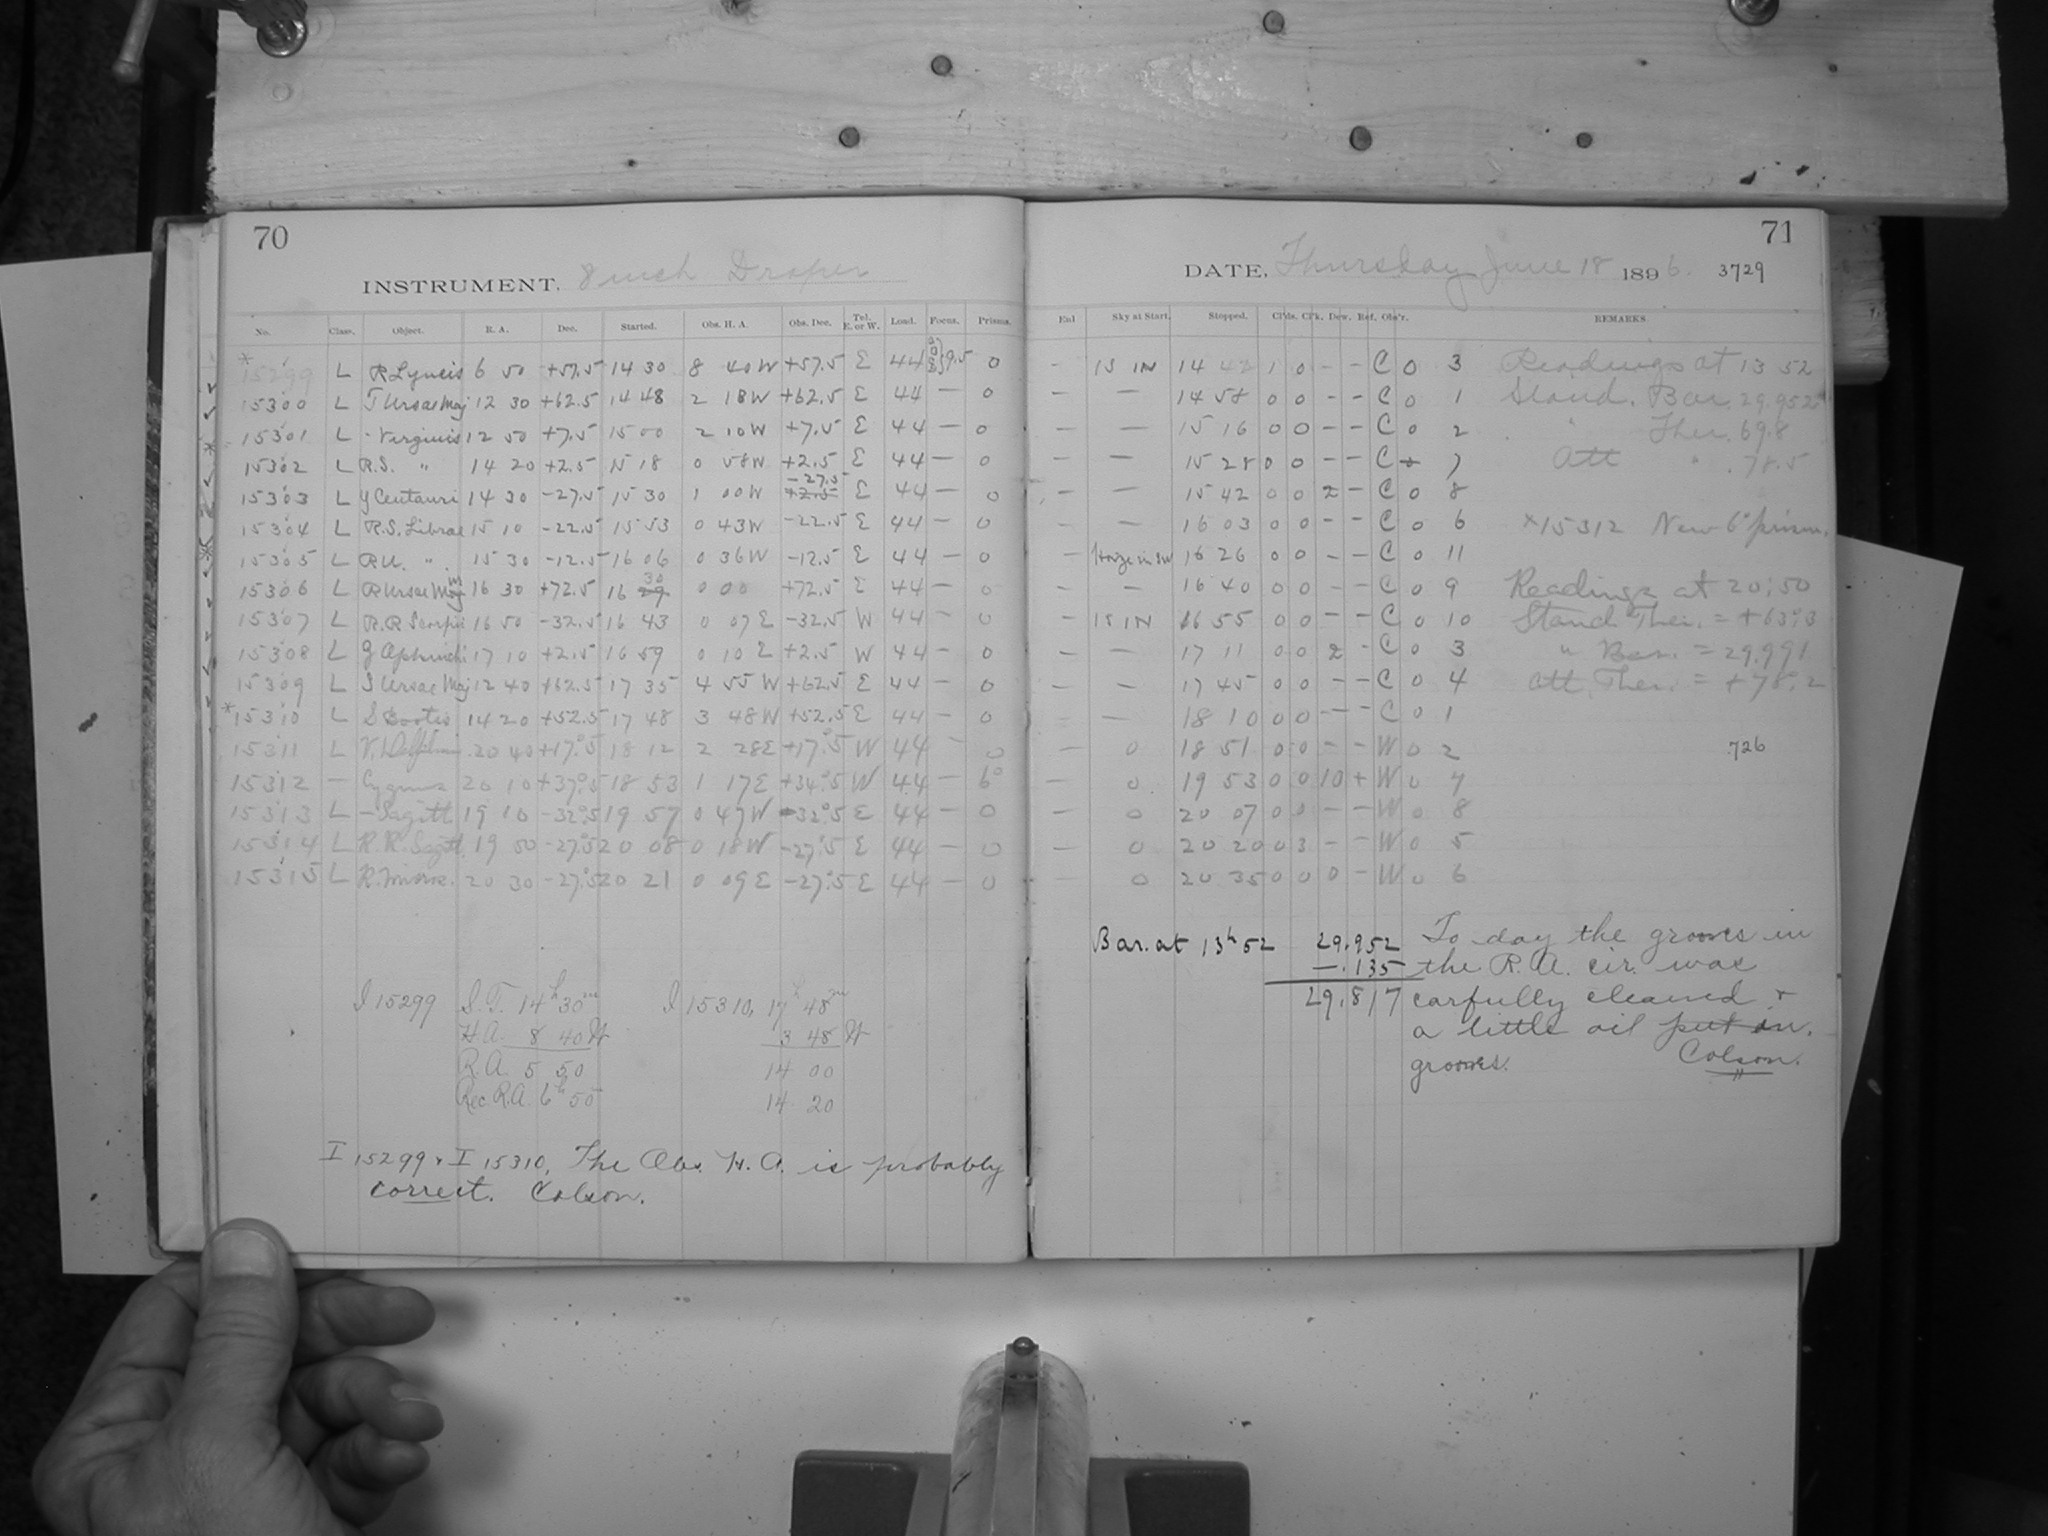 70
INSTRUMENT. 8 inch Draper
No. Class. Object. R. A. Dec. Started. Obs. H. A. Obs. Dec. Tel. E. or W. Load. Focus. Prisms.
*15299 L R Lyncis 6 50 +57.5 14 30 8 40 W +57.5 E 44 9.5 0
15300 L T Ursae Maj 12 30 +62.5 14 48 2 18 W +62.5 E 44 — 0
15301 L - Virginis 12 50 +7.5 15 00 2 10 W +7.5 E 44 — 0
15302 L R.S. " 14 20 +2.5 15 18 0 58 W +2.5 E 44 — 0
15303 L Y Centauri 14 30 -27.5 15 30 1 00 W -27.5 +2.5 E 44 — 0
15304 L R.S. Librae 15 10 -22.5 15 53 0 43 W -22.5 E 44 — 0
15305 L R.U. " 15 30 -12.5 16 06 0 36 W -12.5 E 44 — 0
15306 L R Ursae Min 16 30 +72.5 16 29 30 0 00 +72.5 E 44 — 0
15307 L R.R Scorpii 16 50 -32.5 16 43 0 07 E -32.5 W 44 — 0
15308 L 17 10 +2.5 16 59 0 10 E +2.5 W 44 — 0
15309 L S Ursae Maj 12 40 +62.5 17 35 4 55 W +62.5 E 44 — 0
*15310 L S Bootis 14 20 +52.5 17 48 3 48 W +52.5 E 44 — 0
15311 L V. Delphini 20 40 +17°.5 18 12 2 28 E +17°.5 W 44 - 0
15312 — Cygnus 20 10 +37°.5 18 53 1 17 E +34°.5 W 44 — 6°
15313 L — Sagitt 19 10 -32°.5 19 57 0 47 W -32°.5 E 44 — 0
15314 L R.R. Sagitt. 19 50 -27°.5 20 08 0 18 W -27°.5 E 44 — 0
15315 L R. Micros. 20 30 -27°.5 20 21 0 09 E -27°.5 E 44 — 0
I 15299 S.T. 14h 30m I 15310, 17h 48m
H.A. 8 40 W 3 48 W
R.A. 5 50 14 00
Rec. R.A. 6h 50 14 20
I 15299 & I 15310, The Obs. H. A. is probably
correct. Colson.
71
DATE, Thursday June 18 1896. 3729
Enl Sky at Start. Stopped. Cl'ds. Cl'k. Dew. Ref. Obs'r. REMARKS.
- 15 IN 14 42 1 0 - - C 0 3 Readings at 13 52
— — 14 58 0 0 - - C 0 1 Stand. Bar. 29.952
— — 15 16 0 0 - - C 0 2 " Ther. 69.8
— — 15 28 0 0 - - C 0 7 Att " 78.5
— — 15 42 0 0 2 - C 0 8
— — 16 03 0 0 - - C 0 6 ×15312 New 6° prism.
— Haze in SW 16 26 0 0 - - C 0 11
— — 16 40 0 0 - - C 0 9 Readings at 20:50
— 15 IN 16 55 0 0 - - C 0 10 Stand Ther. = +63°.3
— — 17 11 0 0 2 - C 0 3 " Bar. = 29.991
— — 17 45 0 0 - - C 0 4 Att. Ther. = +78°.2
— — 18 10 0 0 - - C 0 1
— 0 18 51 0 0 - - W 0 2 .726
— 0 19 53 0 0 10 + W 0 7
— 0 20 07 0 0 - - W 0 8
— 0 20 20 0 3 - - W 0 5
— 0 20 35 0 0 0 - W 0 6
Bar. at 13h 52 29.952 To day the grooves in
-.135 the R.A. cir. was
29.817 carfully cleaned &
a little oil put in.
grooves. Colson.